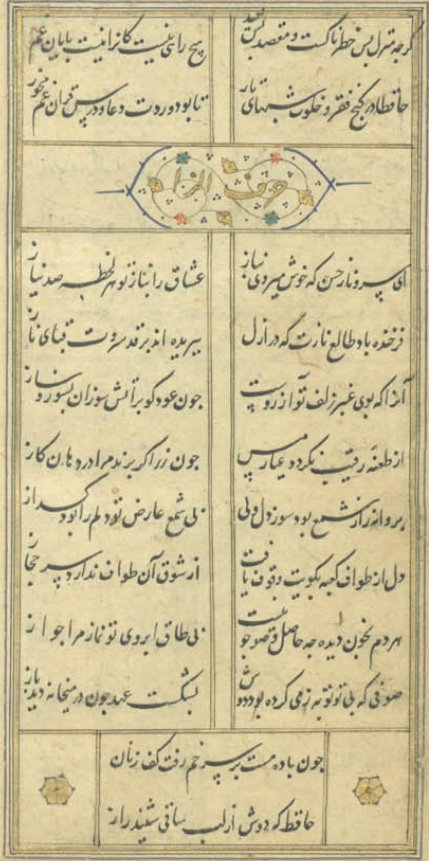 گرچه منزل بس خطرناکست و مقصد بس بعید
هیچ راهی نیست کانرا نیست پایان غم مخور
حافظا در کنج فقر و خلوت شبهای تار
تا بود وردت دعا و درس قرآن غم مخور
حرف الزا
ای سرو ناز حسن که خوش میروی بناز
عشاق را بناز تو هر لحظه صد نیاز
فرخنده باد طالع نازت که در ازل
ببریده اند بر قد سروت قبای ناز
آنرا که بوی عنبر زلف تو آرزوست
چون عود گو بر آتش سوزان بسوز و ساز
از طعنه رقیب نگردد عیار من
چون زر اگر برند مرا در دهان گاز
پروانه را ز شمع بود سوز دل ولی
بی شمع عارض تو دلم را بود گداز
دل از طواف کعبه کویت وقوف یافت
از شوق آن طواف ندارد سر حجاز
هر دم بخون دیده چه حاصل وضو چو نیست
بی طاق ابروی تو نماز مرا جواز
صوفی که بی تو توبه ز می کرده بود دوش
بشکست عهد چون در میخانه دید باز
چون باده مست بر سر خم رفت کف زنان
حافظ که دوش از لب ساقی شنید راز